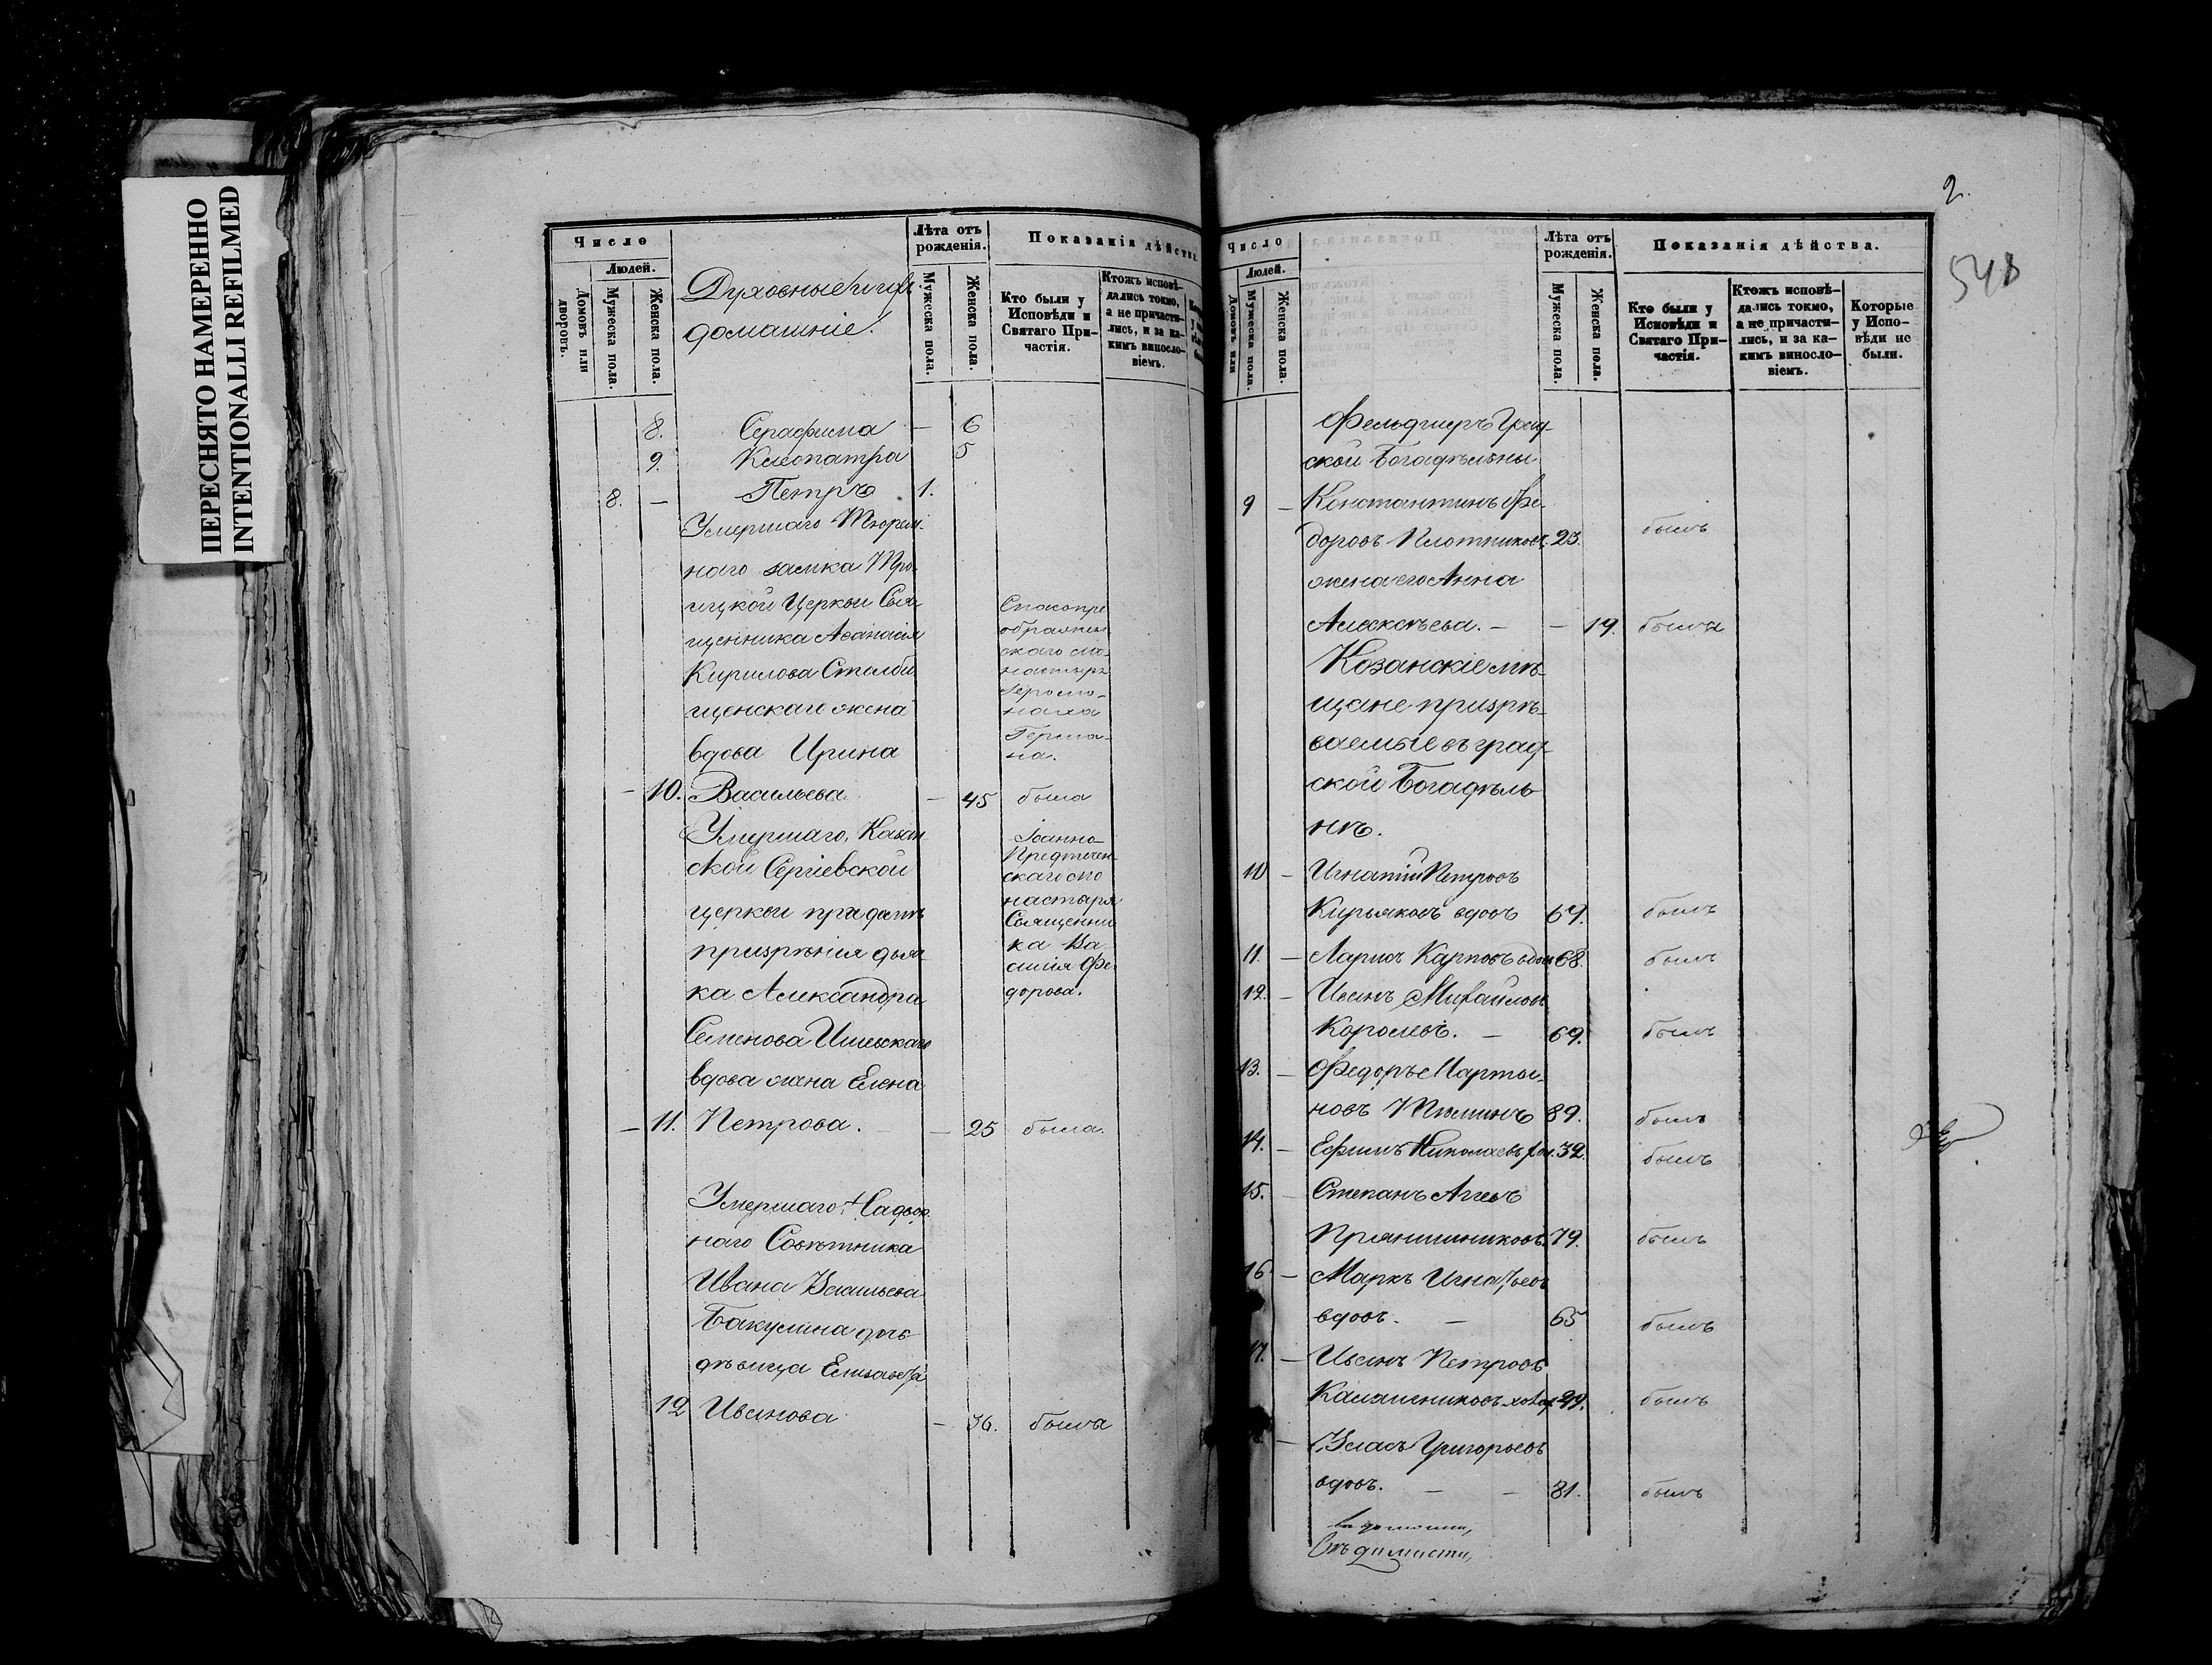 ПЕРЕСНЯТО НАМЕРЕННО
INTENTIONALLI REFILMED
Число
Людей.
Домовъ или дворовъ.
Мужеска пола.
Женска пола.
Духовные и ихъ
домашніе.
Лѣта отъ рожденія.
Мужеска пола.
Женска пола.
Показанія дѣйства.
Кто были у Исповѣди и Святаго Причастія.
Ктожъ исповѣдались токмо, а не причастились, и за какимъ винословіемъ.
8. Серафима — 6
9. Клеопатра 5
8. — Петръ 1.
Умершаго Тюрем-
наго замка Тро-
ицкой Церкви Свя-
щенника Аѳанасія
Кирилова Столби
щенскаго жена
вдова Ирина
— 10. Васильева — 45 была
Спасопре
ображен
скаго мо-
настыря
Іеромо-
наха
Герма-
на.
Умершаго, Казан
ской Сергіевской
церкви при домѣ
призрѣнія дья-
ка Александра
Семенова Ишевскаго
вдова жена Елена
— 11. Петрова. — 25 была.
Іоанно-
Предтечен-
скаго мо
настыря
Священни
ка Ва
силія Фе
дорова.
Умершаго Надвор
наго Совѣтника
Ивана Васильева
Бакулина дочь
дѣвица Елизавета
12 Иванова — 36. была
2.
548
Число
Людей.
Домовъ или
Мужеска пола.
Женска пола.
Лѣта отъ рожденія.
Мужеска пола.
Женска пола.
Показанія дѣйства.
Кто были у Исповѣди и Святаго Причастія.
Ктожъ исповѣдались токмо, а не причастились, и за какимъ винословіемъ.
Которые у Исповѣди не были.
Фельдшеръ Град-
ской Богадѣльны
9 — Константинъ Фе-
доровъ Плотниковъ. 23. былъ
жена его Анна
Алексѣева. — — 19. была
Козанскіе мѣ-
щане призрѣ-
ваемые въ град-
ской Богадѣль-
нѣ.
10 — Игнатій Петровъ
Кирьяковъ вдовъ 69. былъ
11. — Ларіонъ Карповъ вдов 68. былъ
12. — Иванъ Михайловъ
Королевъ. — 69. былъ
13. — Федоръ Марты-
новъ Тюминъ 89. былъ
14. — Ефимъ Николаевъ хол. 32. былъ
15. Степанъ Агеевъ
Прянишниковъ. 79. былъ
16 — Маркъ Игнатьевъ
вдовъ. — 65 былъ
17. — Иванъ Петровъ
Калашниковъ холос. 49. былъ
— Власъ Григорьевъ
вдовъ. — — 81. былъ